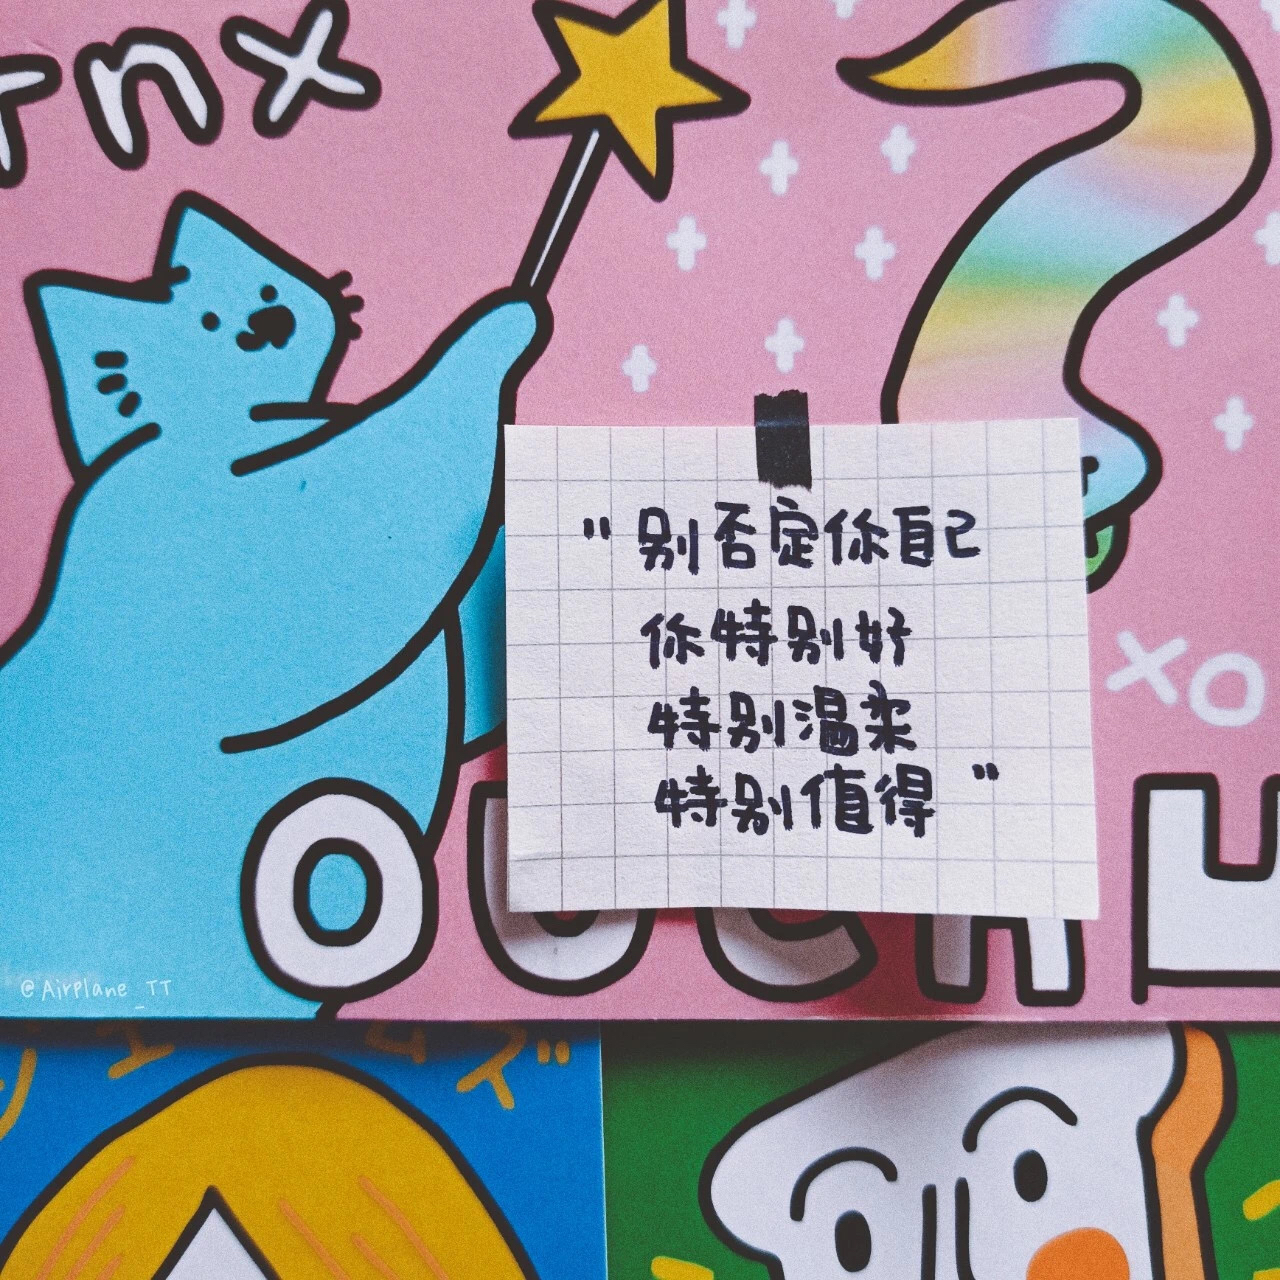 rnx
"别否定你自己
你特别好
特别温柔
特别值得"
xo
OUCH
@Airplane_TT